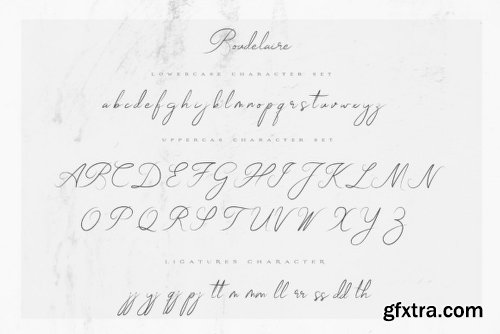 Roudelaire
LOWERCASE CHARACTER SET
abcdefghijklmnopqrstuvwxyz
UPPERCAS CHARACTER SET
ABCDEFGHIJKLMN
OPQRSTUVWXYZ
LIGATURES CHARACTER
jj yj gj pj tt m mm ll rr ss dd th
gfxtra.com